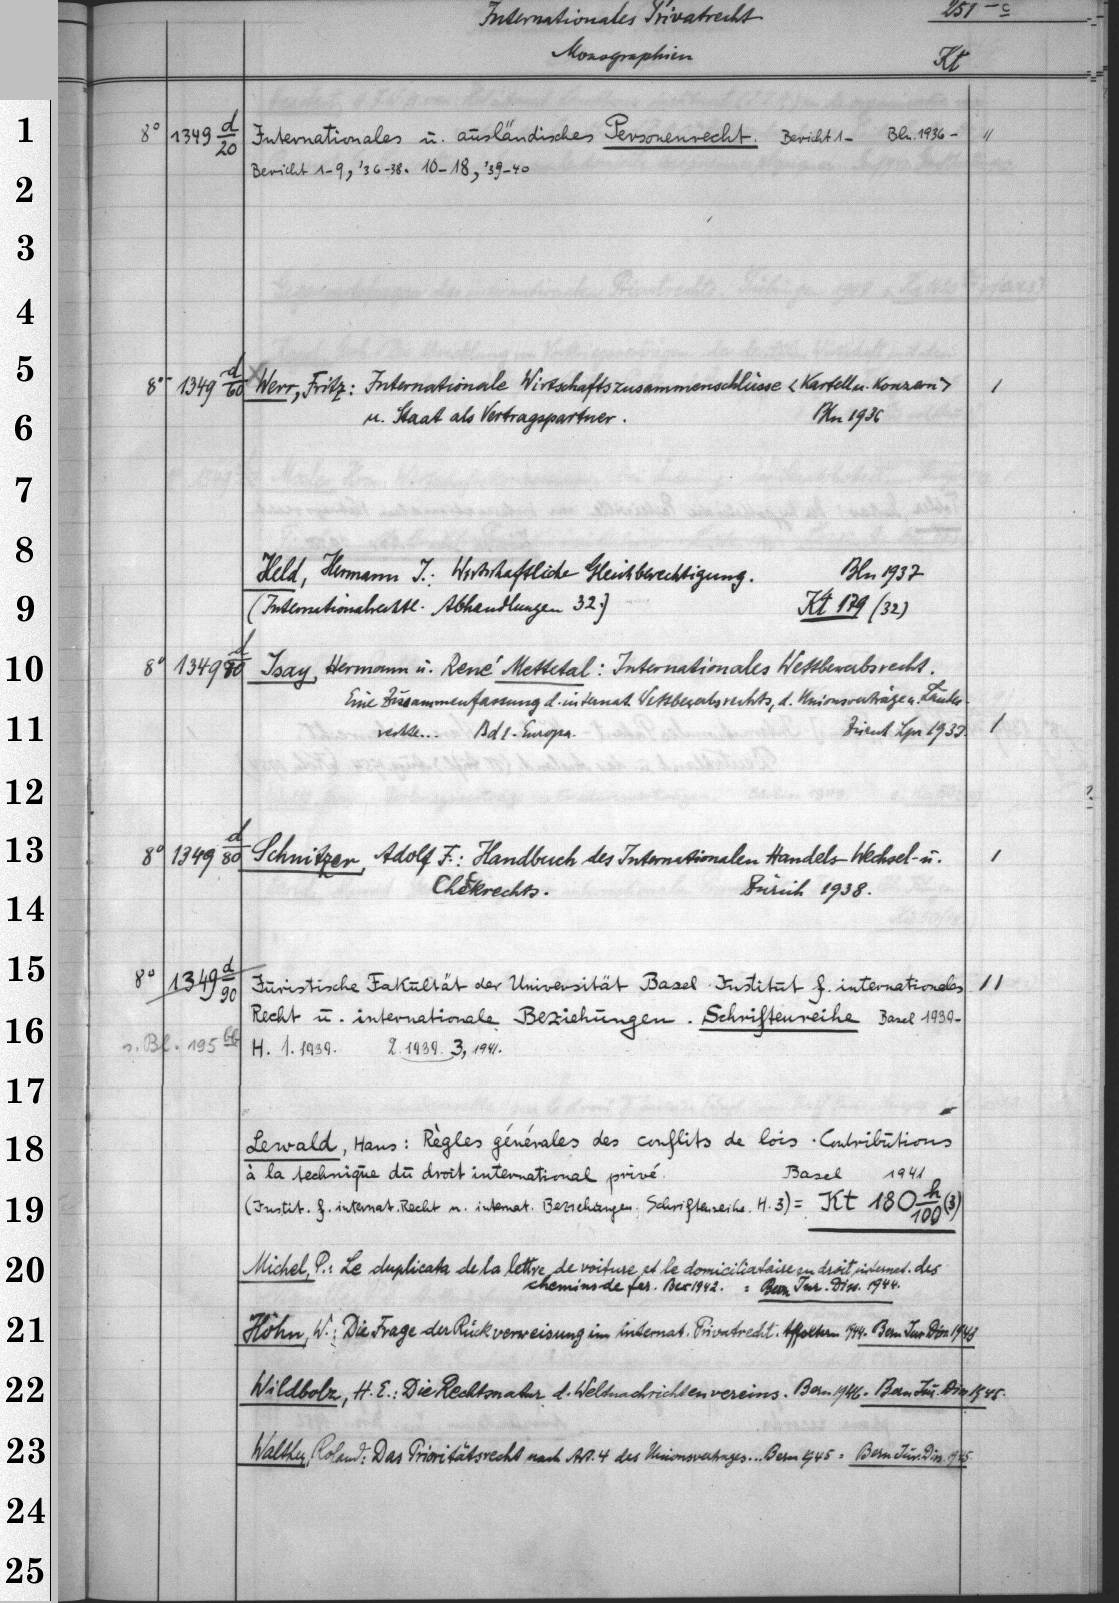 Internationales Privatrecht 251 - c
Monographien Kt
1 8° 1349 d/20 Internationales u. ausländisches Personenrecht. Bericht 1- Bln. 1936- "
Bericht 1-9, '36-38. 10-18, '39-40
2
3
4
5 8° 1349 d/60 Werr, Fritz: Internationale Wirtschaftszusammenschlüsse <Kartell u. Konzern> 1
6 u. Staat als Vertragspartner. Bln 1936
7
8 Held, Hermann J.: Wirtschaftliche Gleichberechtigung. Bln 1937
9 (Internationalrechtl. Abhandlungen 32.) Kt 179 (32)
10 8° 1349 d/70 Isay, Hermann u. René Mettetal: Internationales Wettbewerbsrecht.
Eine Zusammenfassung d. internat. Wettbewerbsrechts, d. Unionsverträge u. Länder-
11 rechte... Bd 1. Europa. Zürich Lpz 1937. 1
12
13 8° 1349 d/80 Schnitzer, Adolf F.: Handbuch des Internationalen Handels- Wechsel- u. 1
14 Checkrechts. Zürich 1938.
15 8° 1349 d/90 Juristische Fakultät der Universität Basel. Institut f. internationales 11
16 Recht u. internationale Beziehungen. Schriftenreihe Basel 1939-
s. Bl. 195 H. 1. 1939. 2. 1939. 3, 1941.
17
18 Lewald, Hans: Règles générales des conflits de lois. Contributions
à la technique du droit international privé. Basel 1941
19 (Instit. f. internat. Recht u. internat. Beziehungen. Schriftenreihe. H. 3) = Kt 180 h/100 (3)
20 Michel, P.: Le duplicata de la lettre de voiture et le domiciliataire en droit internat. des
chemins de fer. 1942. = Bern Jur. Diss. 1944.
21 Höhn, W.: Die Frage der Rückverweisung im internat. Privatrecht. Affoltern 1944. Bern Jur. Diss 1943
22 Wildbolz, H. E.: Die Rechtsnatur d. Weltnachrichtenvereins. Bern 1946. Bern Jur. Diss 1945.
23 Walther, Roland: Das Prioritätsrecht nach Art. 4 des Unionsvertrages... Bern 1945 = Bern Jur. Diss. 1945
24
25